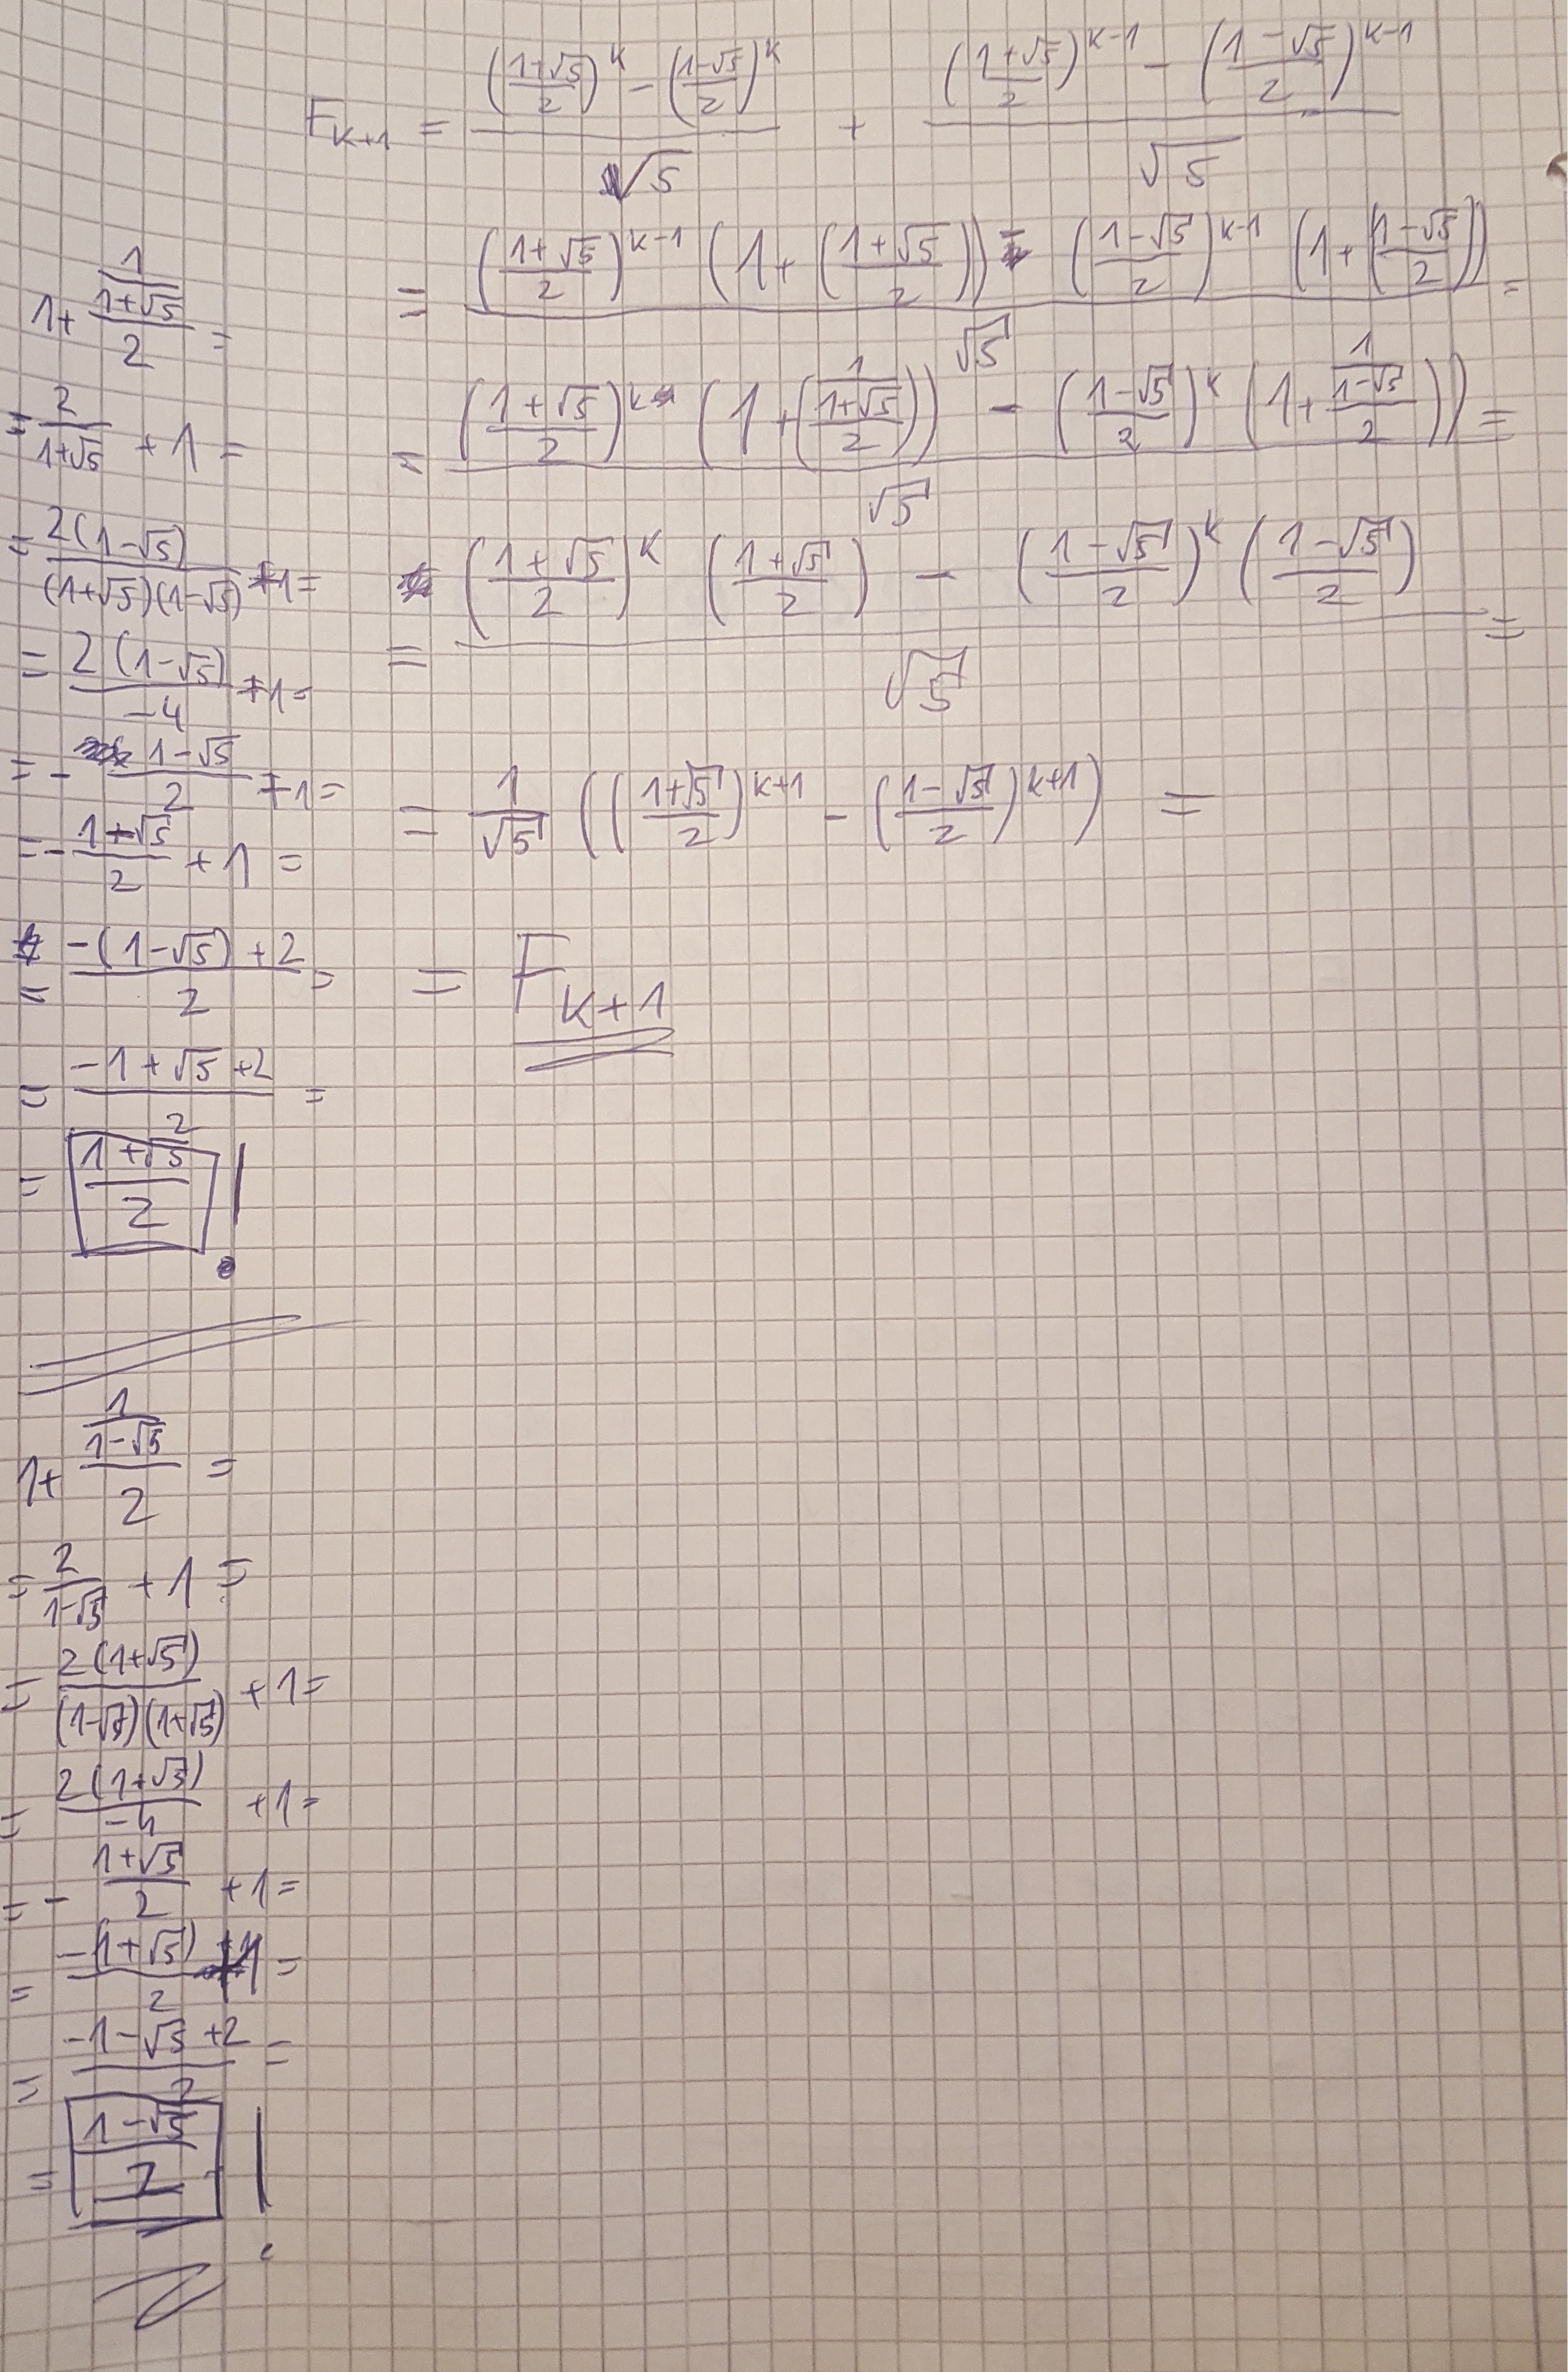 F_{k+1} = \frac{(\frac{1+√5}{2})^k - (\frac{1-√5}{2})^k}{√5} + \frac{(\frac{1+√5}{2})^{k-1} - (\frac{1-√5}{2})^{k-1}}{√5}
= \frac{(\frac{1+√5}{2})^{k-1} (1 + (\frac{1+√5}{2})) - (\frac{1-√5}{2})^{k-1} (1 + (\frac{1-√5}{2}))}{√5} =
= \frac{(\frac{1+√5}{2})^k (1 + (\frac{\frac{1}{1+√5}}{2})) - (\frac{1-√5}{2})^k (1 + \frac{\frac{1}{1-√5}}{2}))}{√5} =
= \frac{(\frac{1+√5}{2})^k (\frac{1+√5}{2}) - (\frac{1-√5}{2})^k (\frac{1-√5}{2})}{√5} =
= \frac{1}{√5} ((\frac{1+√5}{2})^{k+1} - (\frac{1-√5}{2})^{k+1}) =
= F_{k+1}
1 + \frac{\frac{1}{1+√5}}{2} =
= \frac{2}{1+√5} + 1 =
= \frac{2(1-√5)}{(1+√5)(1-√5)} + 1 =
= \frac{2(1-√5)}{-4} + 1 =
= - \frac{1-√5}{2} + 1 =
= - \frac{1-√5}{2} + 1 =
= \frac{-(1-√5) + 2}{2} =
= \frac{-1+√5+2}{2} =
= \frac{1+√5}{2} !
1 + \frac{\frac{1}{1-√5}}{2} =
= \frac{2}{1-√5} + 1 =
= \frac{2(1+√5)}{(1-√5)(1+√5)} + 1 =
= \frac{2(1+√5)}{-4} + 1 =
= - \frac{1+√5}{2} + 1 =
= \frac{-(1+√5)}{2} + 1 =
= \frac{-1-√5+2}{2} =
= \frac{1-√5}{2} !